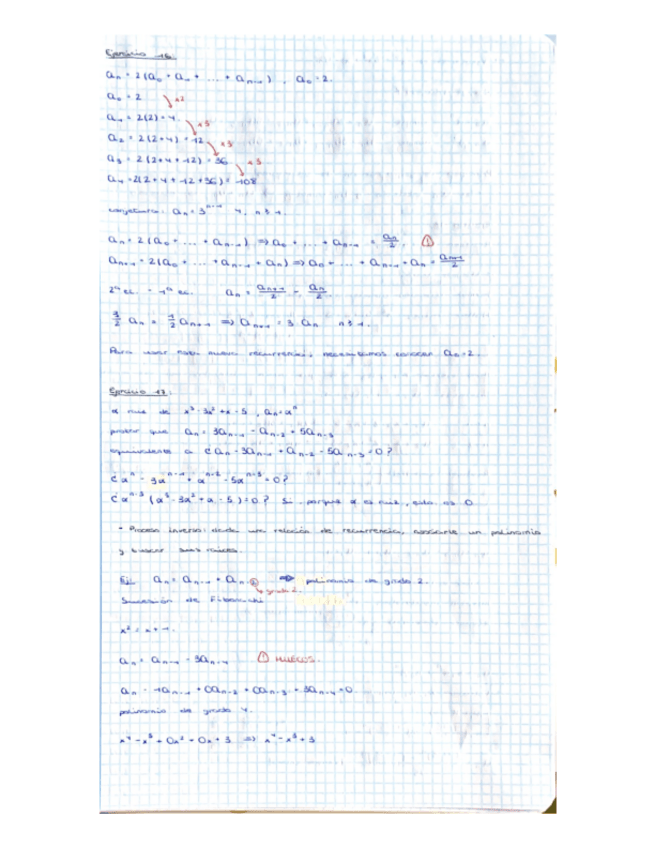 Ejercicio 16:
aₙ = 2(a₀ + a₁ + ... + aₙ₋₁), a₀ = 2.
a₀ = 2 ×2
a₁ = 2(2) = 4. ×3
a₂ = 2(2+4) = 12 ×3
a₃ = 2(2+4+12) = 36 ×3
a₄ = 2(2+4+12+36) = 108
conjetura: aₙ = 3ⁿ⁻¹ 4, n ≥ 1.
aₙ = 2(a₀ + ... + aₙ₋₁) ⇒ a₀ + ... + aₙ₋₁ = aₙ/2. (!)
aₙ₊₁ = 2(a₀ + ... + aₙ₋₁ + aₙ) ⇒ a₀ + ... + aₙ₋₁ + aₙ = aₙ₊₁/2
2ª ec. - 1ª ec. aₙ = aₙ₊₁/2 - aₙ/2
3/2 aₙ = 1/2 aₙ₊₁ ⇒ aₙ₊₁ = 3 aₙ n ≥ 1.
Para usar esta nueva recurrencia, necesitamos conocer = 2.
Ejercicio 17:
α raíz de x³ - 3x² + x - 5, aₙ = αⁿ
probar que aₙ = 3aₙ₋₁ - aₙ₋₂ + 5aₙ₋₃
equivalente a ¿ aₙ - 3aₙ₋₁ + aₙ₋₂ - 5aₙ₋₃ = 0?
¿ αⁿ - 3αⁿ⁻¹ + αⁿ⁻² - 5αⁿ⁻³ = 0?
¿ αⁿ⁻³ (α³ - 3α² + α - 5) = 0? Sí, porque α es raíz, esto es 0.
- Proceso inverso: dada una relación de recurrencia, asociarle un polinomio
y buscar sus raíces.
Ej: aₙ = aₙ₋₁ + aₙ₋₂ ⇒ polinomio de grado 2.
grado 2.
Sucesión de Fibonacci
x² = x + 1.
aₙ = aₙ₋₁ - 3aₙ₋₄ (!) HUECOS.
aₙ - 1aₙ₋₁ + 0aₙ₋₂ + 0aₙ₋₃ + 3aₙ₋₄ = 0
polinomio de grado 4.
x⁴ - x³ + 0x² + 0x + 3 ⇒ x⁴ - x³ + 3